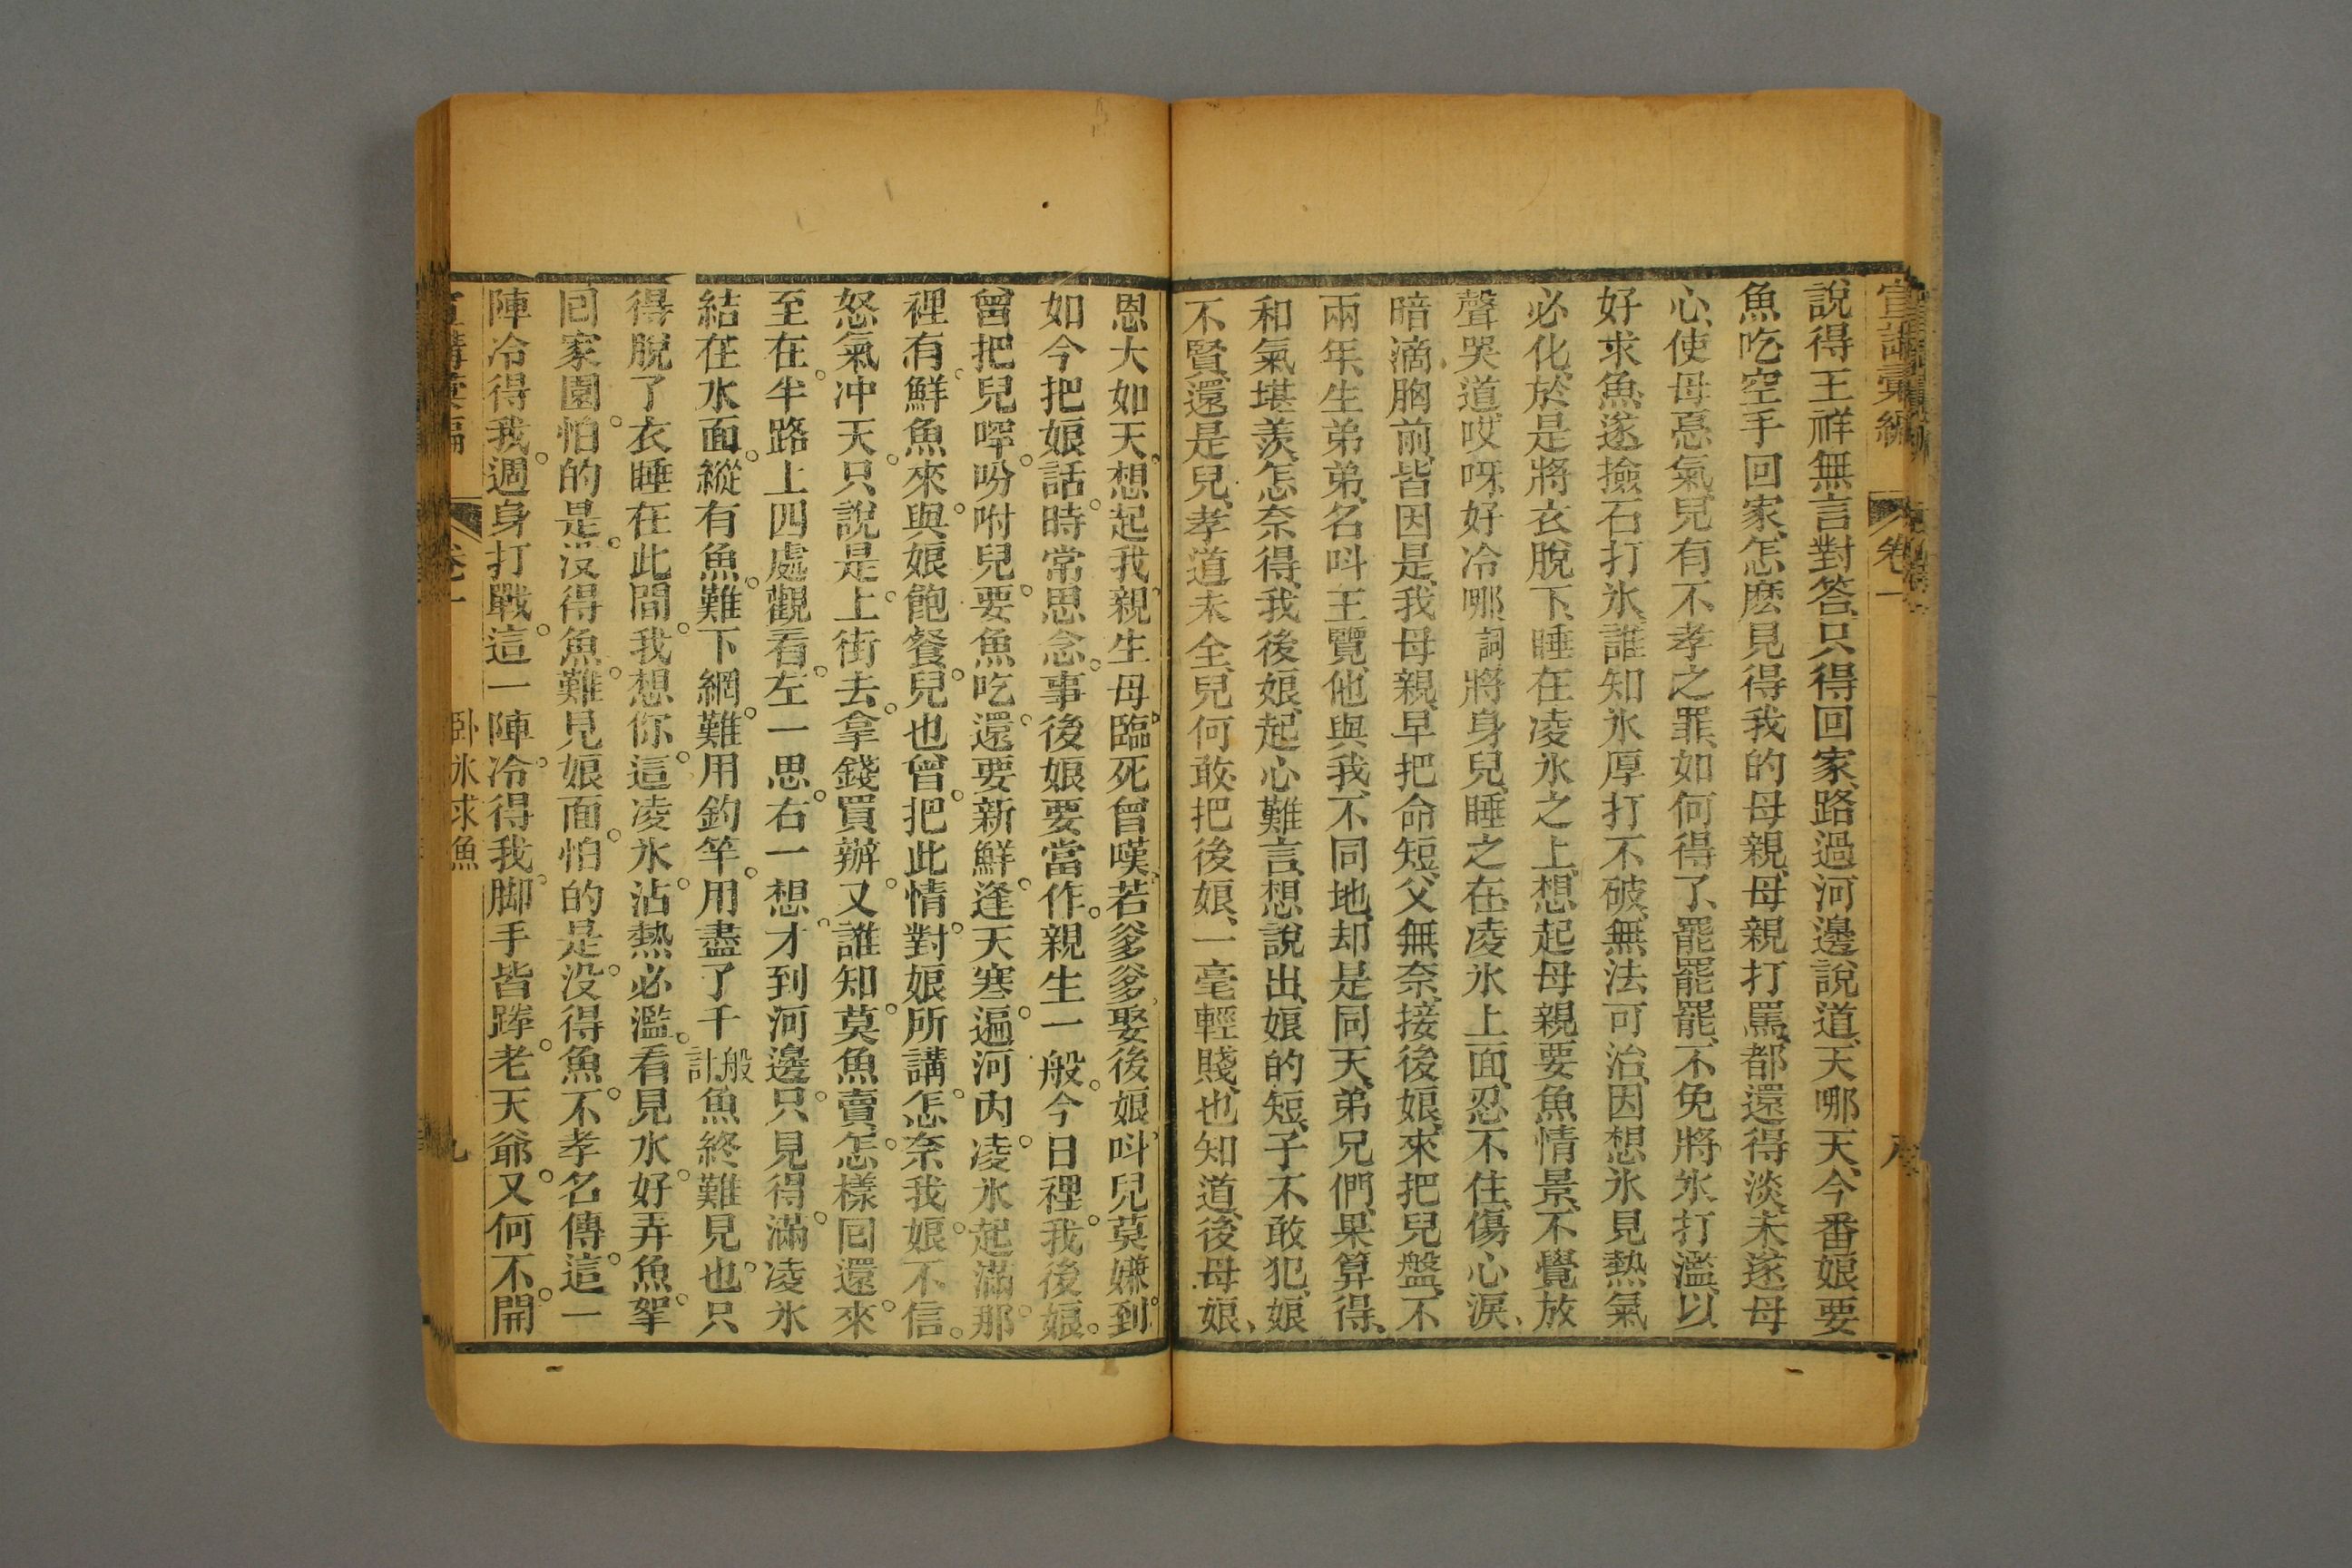 宣講彙編 卷一
說得王祥無言對答、只得回家、路過河邊、說道、天哪天、今番娘要
魚吃、空手回家、怎麽見得我的母親、母親打罵、都還得淡、未遂母
心、使母惪氣、兒有不孝之罪、如何得了、罷罷罷、不免將氷打濫、以
好求魚、遂撿石打氷、誰知氷厚打不破、無法可治、因想氷見熱氣
必化、於是將衣脫下、睡在凌氷之上、想起母親要魚情景、不覺放
聲哭道哎呀、好冷哪 詞 將身兒、睡之在、凌氷上面、忍不住、傷心淚、
暗滴胸前、皆因是、我母親、早把命短、父無奈、接後娘、來把兒盤、不
兩年、生弟弟、名呌王覽、他與我、不同地、却是同天、弟兄們、果算得、
和氣堪羨、怎奈得、我後娘、起心難言、想說出、娘的短、子不敢犯、娘
不賢、還是兒、孝道未全、兒何敢、把後娘、一毫輕賤、也知道、後母娘、
恩大如天。想起我。親生母。臨死曾嘆。若爹爹。娶後娘。呌兒莫嫌。到
如今把娘話。時常思念。事後娘要當作。親生一般。今日裡。我後娘。
曾把兒啐。吩咐兒。要魚吃。還要新鮮。逢天寒。遍河內。凌氷起滿。那
裡有。鮮魚來。與娘飽餐。兒也曾。把此情。對娘所講。怎奈我娘。不信。
怒氣冲天。只說是。上街去。拿錢買辦。又誰知。莫魚賣。怎樣回還。來
至在。半路上四處觀看。左一思。右一想。才到河邊。只見得。滿凌氷
結在水面。縱有魚。難下網。難用釣竿。用盡了千般計魚終難見。也只
得脫了衣睡在此間。我想你。這凌氷。沾熱必濫。看見水。好弄魚。拏
回家園。怕的是。沒得魚。難見娘面。怕的是。没得魚。不孝名傳。這一
陣冷得我。週身打戰。這一陣。冷得我。脚手皆踭。老天爺。又何不。開
卷一 卧氷求魚 九